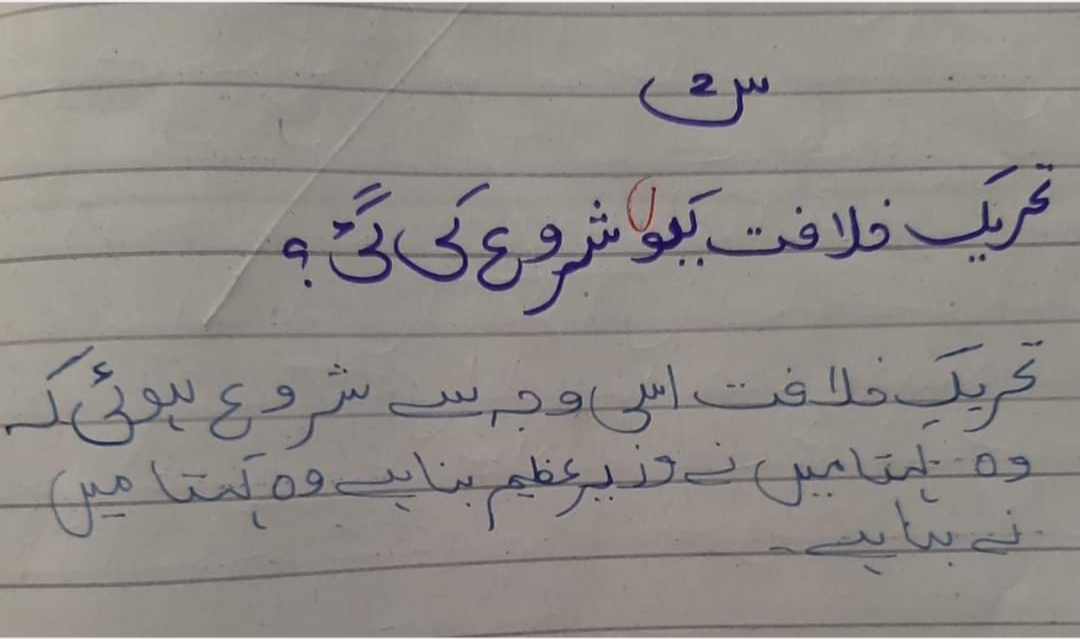 س 2
تحریک خلافت کیوں شروع کی گئ؟
تحریک خلافت اسی وجہ سے شروع ہوئی کہ
وہ کہتا میں نے وزیرعظیم بنا ہے وہ کہتا میں
نے بنا ہے۔